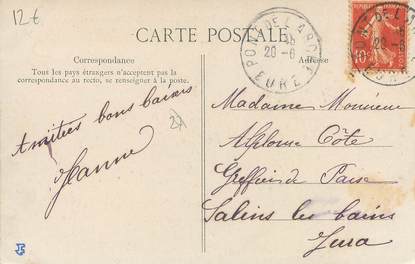 12€
CARTE POSTALE
Correspondance
Tous les pays étrangers n'acceptent pas la
correspondance au recto, se renseigner à la poste.
Amitiés bons baisers
Jeanne
PONT DE L'ARCHE
20-6
EURE
Adresse
10
Madame Monsieur
Alphonse Côte
Greffier de Paix
Salins les bains
Jura